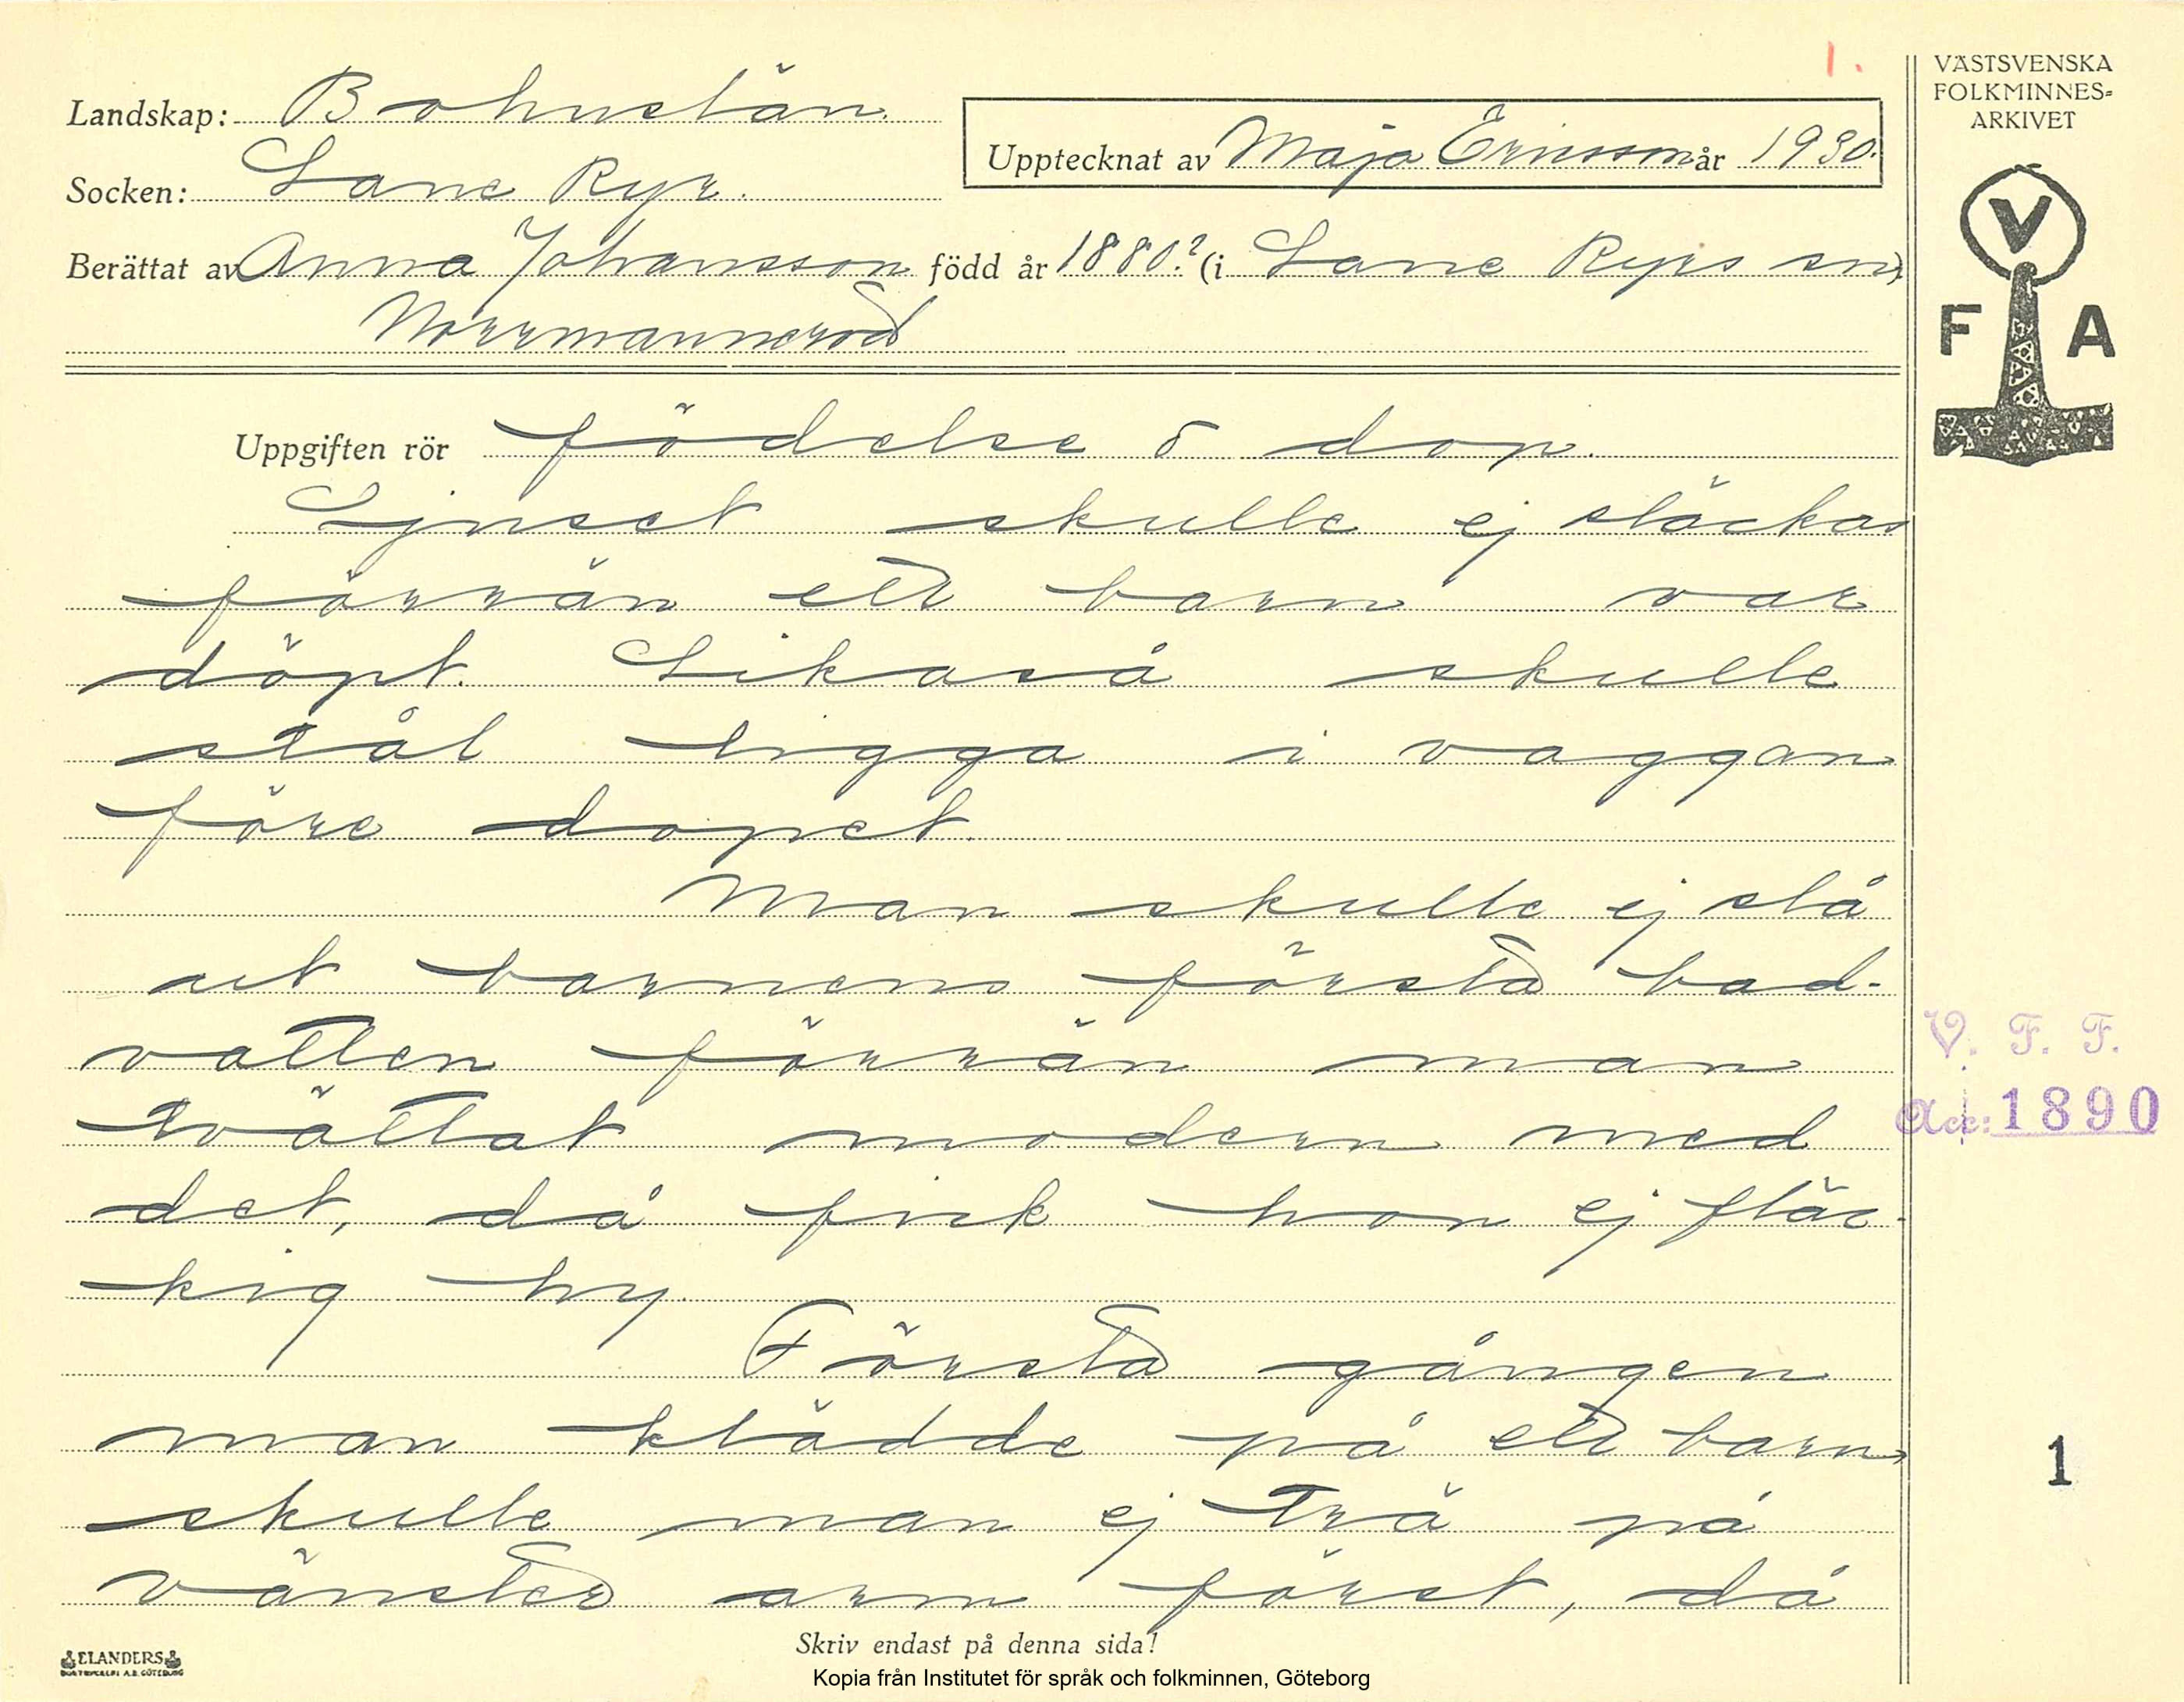 1.
VÄSTSVENSKA
FOLKMINNES=
ARKIVET
V
F A
Landskap: Bohuslän.
Upptecknat av Maja Ericsson år 1930.
Socken: Lane Ryr.
Berättat av Anna Johansson född år 1880? (i Lane Ryrs sn)
Norrmannerod
Uppgiften rör födelse o dop.
Ljuset skulle ej släckas
förrän ett barn var
döpt. Likaså skulle
stål ligga i vaggan
före dopet.
Man skulle ej slå
ut barnens första bad-
vatten förrän man
tvättat modern med
det, då fick hon ej fläc-
kig hy.
Första gången
man klädde på ett barn,
skulle man ej trä på
vänster arm först, då
V. F. F.
Acc: 1890
1
Skriv endast på denna sida!
ELANDERS
BOKTRYCKERI A.B. GÖTEBORG
Kopia från Institutet för språk och folkminnen, Göteborg